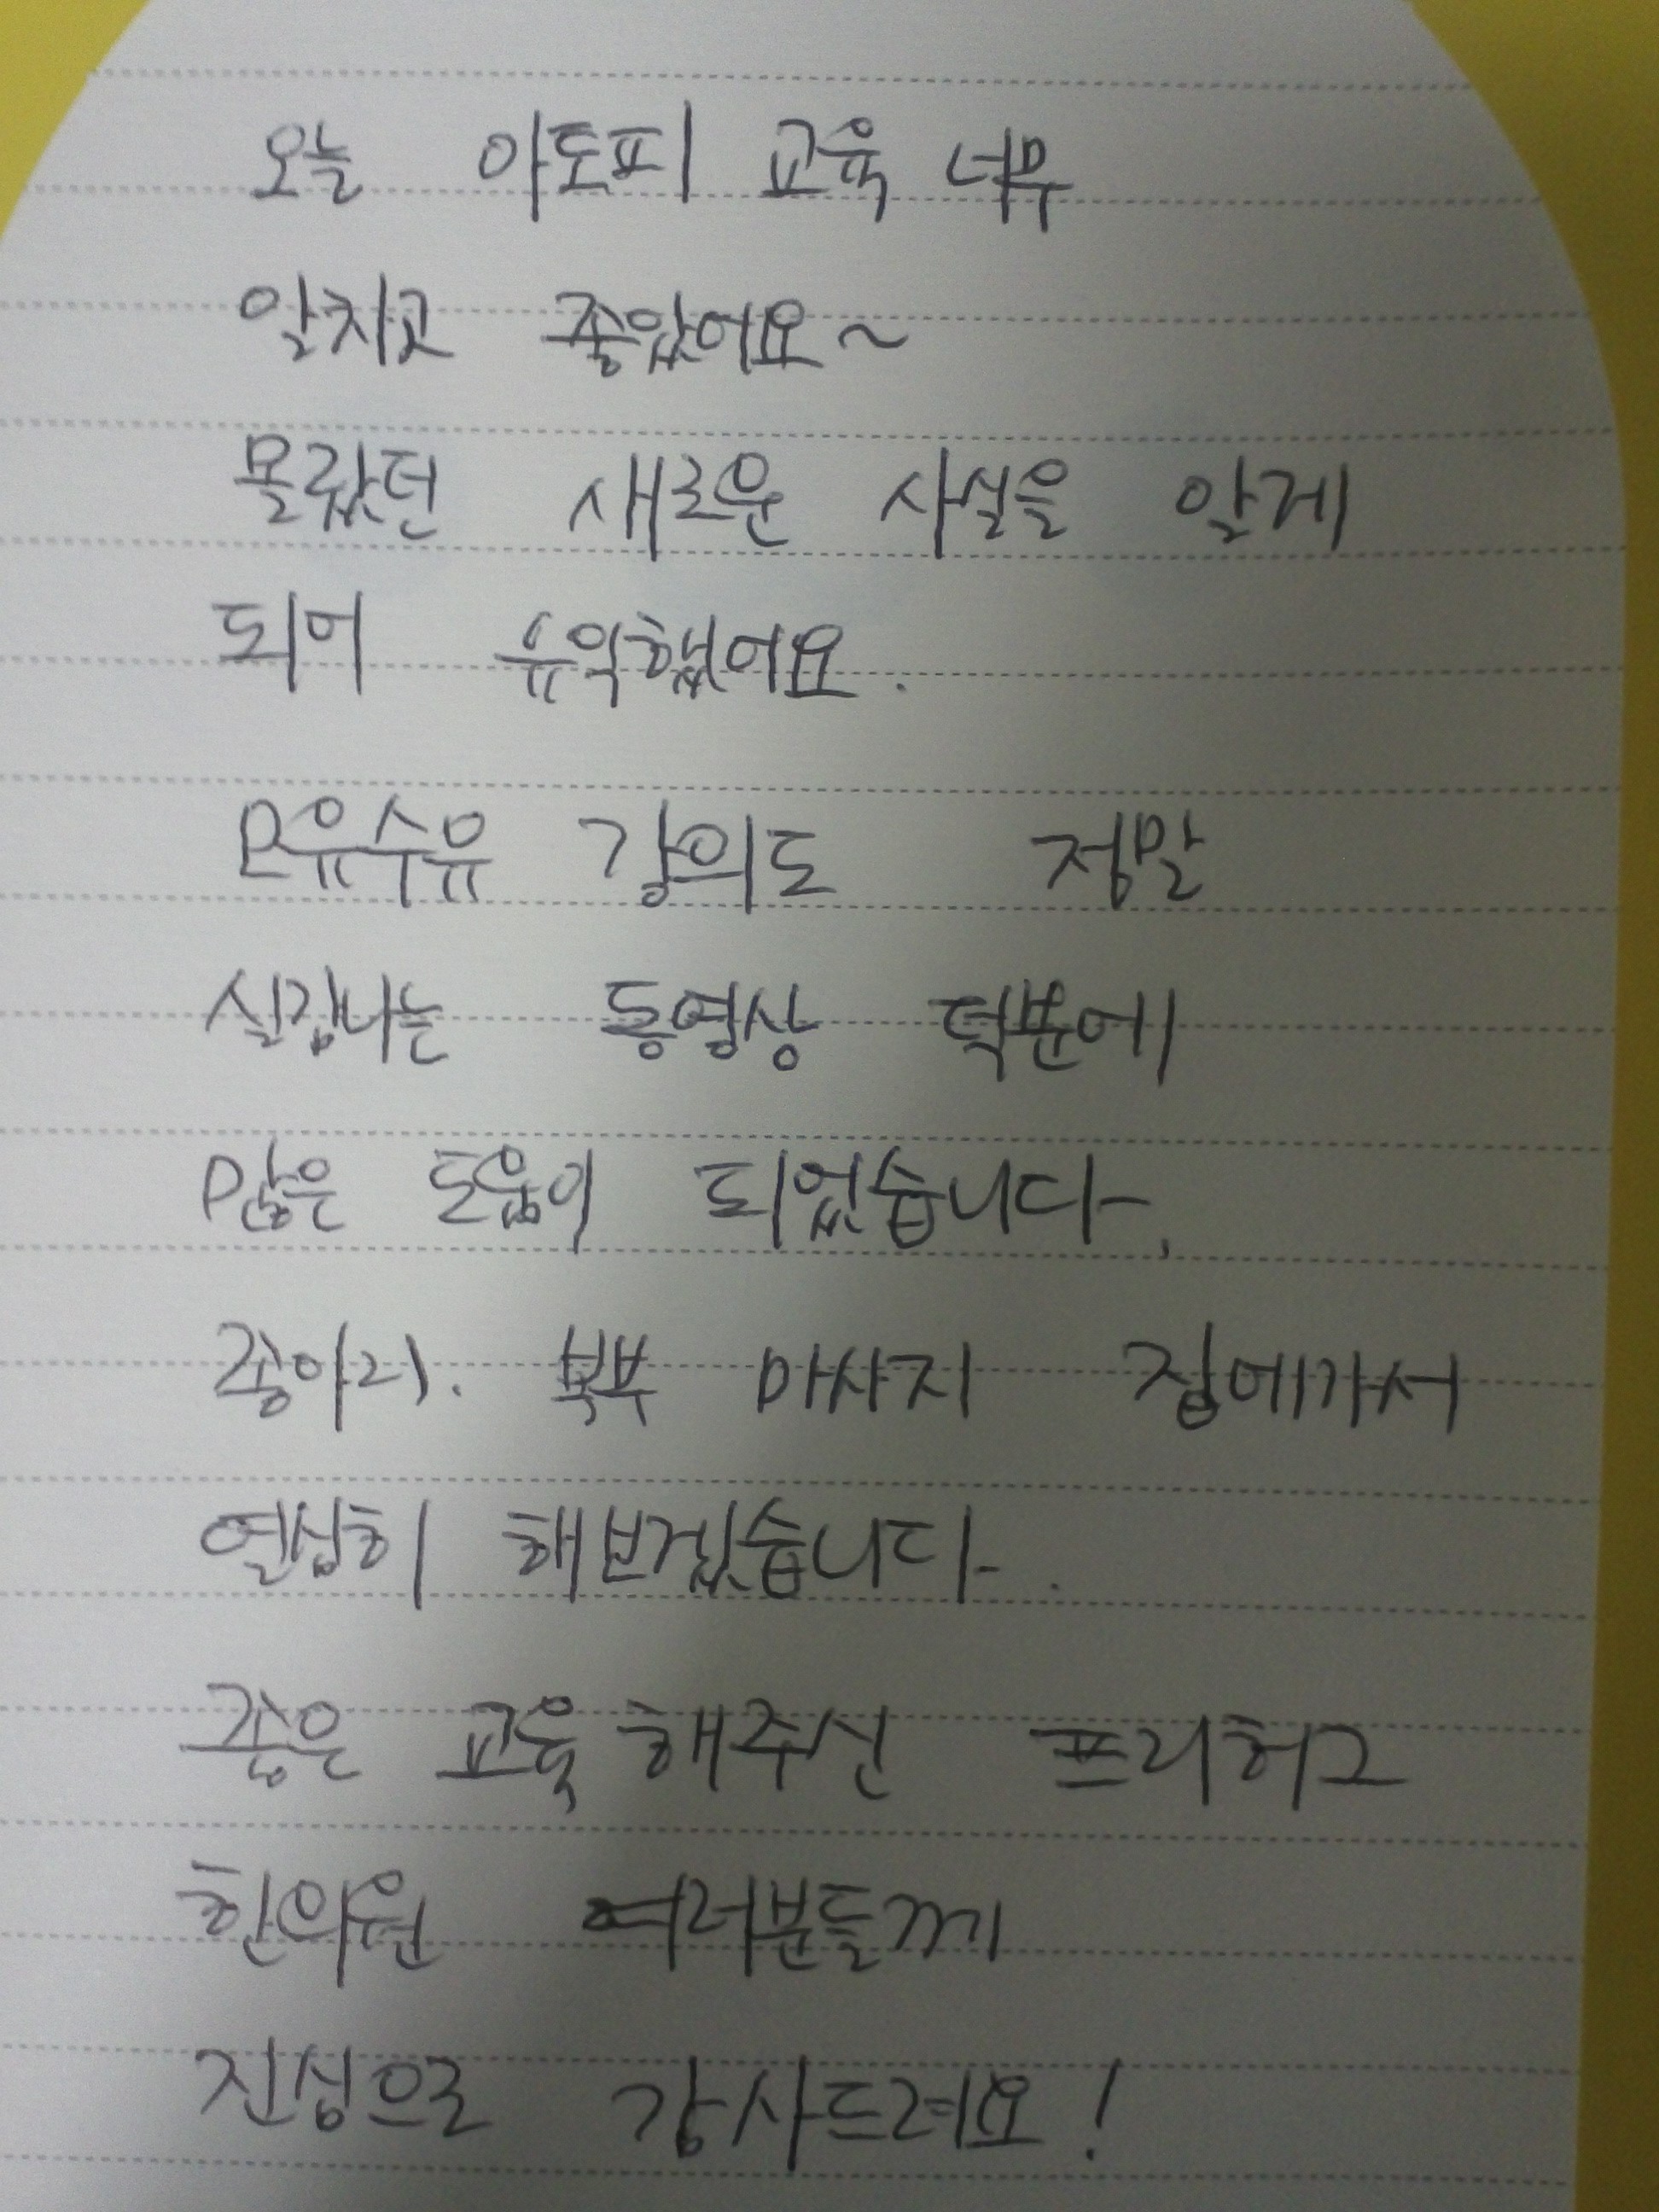 오늘 아토피 교육 너무
알차고 좋았어요~
몰랐던 새로운 사실을 알게
되어 유익했어요.
모유수유 강의도 정말
실감나는 동영상 덕분에
많은 도움이 되었습니다.
종아리. 복부 마사지 집에가서
열심히 해보겠습니다.
좋은 교육 해주신 프리허그
한의원 여러분들께
진심으로 감사드려요!